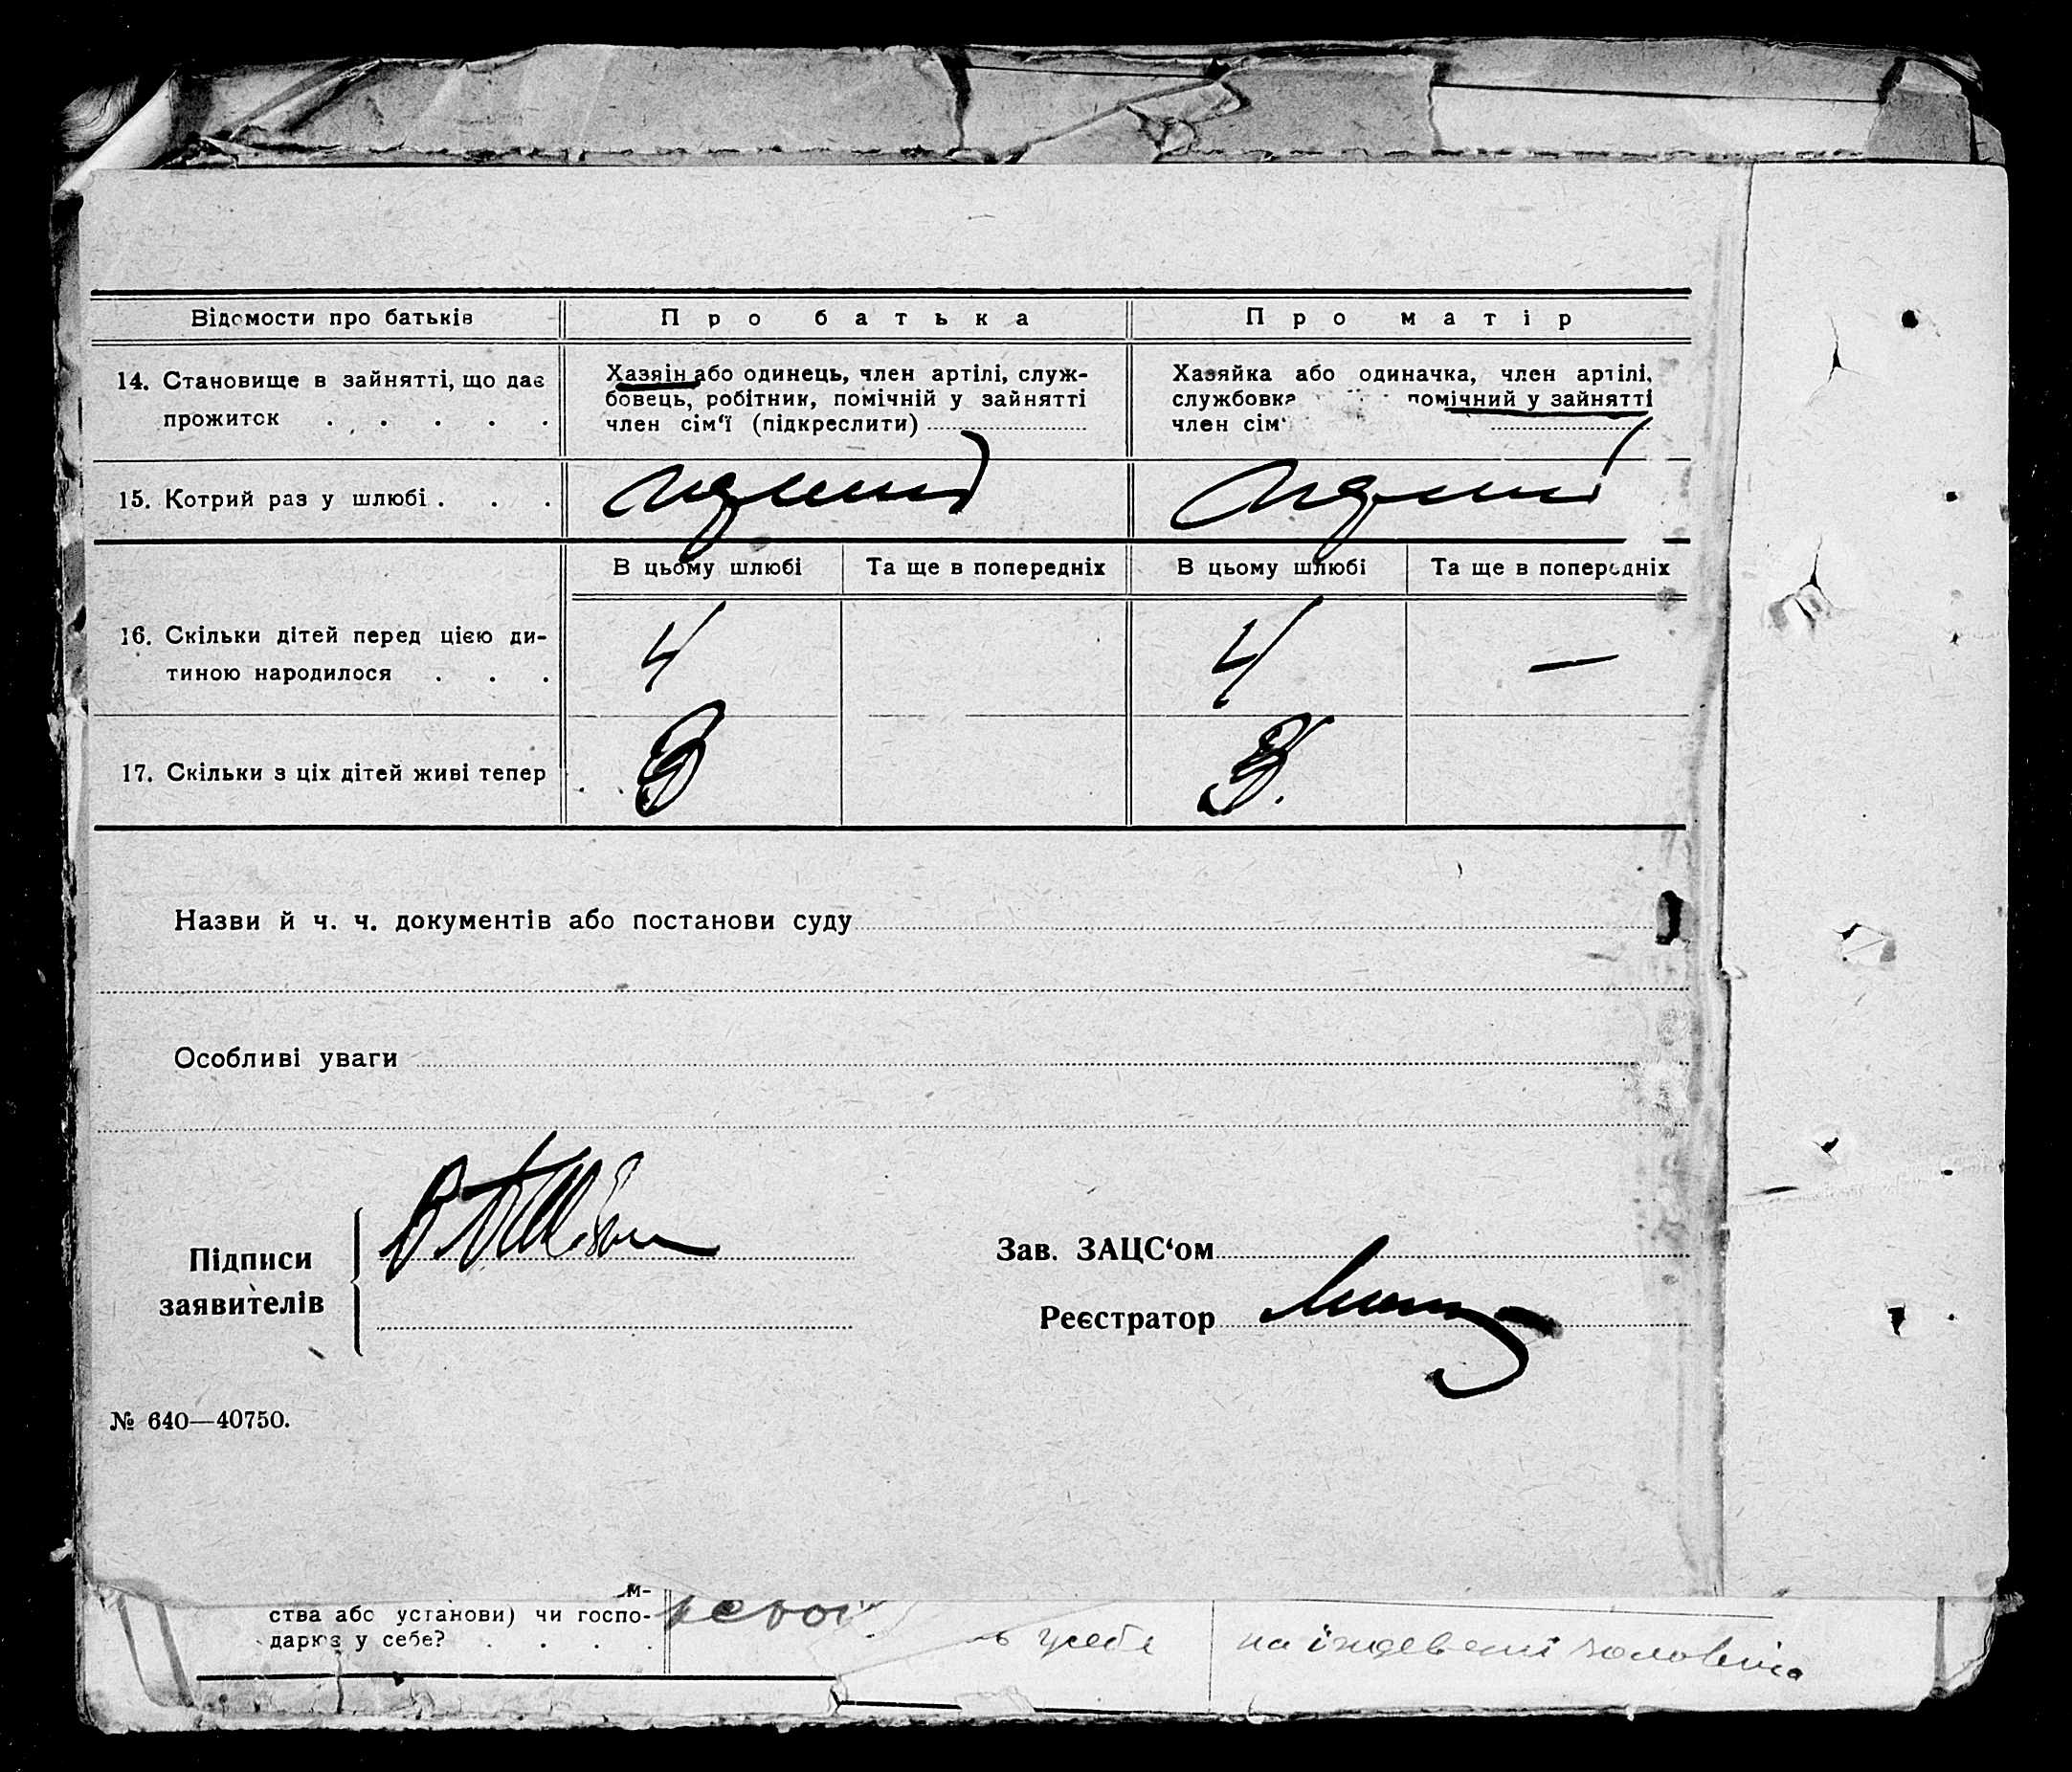 Відомости про батьків
Про батька
Про матір
14. Становище в зайнятті, що дає
прожиток . . . . .
Хазяїн або одинець, член артілі, служ-
бовець, робітник, помічній у зайнятті
член сім‘ї (підкреслити)
Хазяйка або одиначка, член артілі,
службовка помічний у зайнятті
член сім‘
15. Котрий раз у шлюбі . . .
В цьому шлюбі
Та ще в попередніх
В цьому шлюбі
Та ще в попередніх
16. Скільки дітей перед цією ди-
тиною народилося . . .
4
4
—
17. Скільки з ціх дітей живі тепер
3
3.
Назви й ч. ч. документів або постанови суду
Особливі уваги
Підписи
заявителів
Зав. ЗАЦС‘ом
Реєстратор
№ 640—40750.
м-
ства або установи) чи госпо-
дарює у себе? . . . .
ь у себе
на іждевенії чоловіка